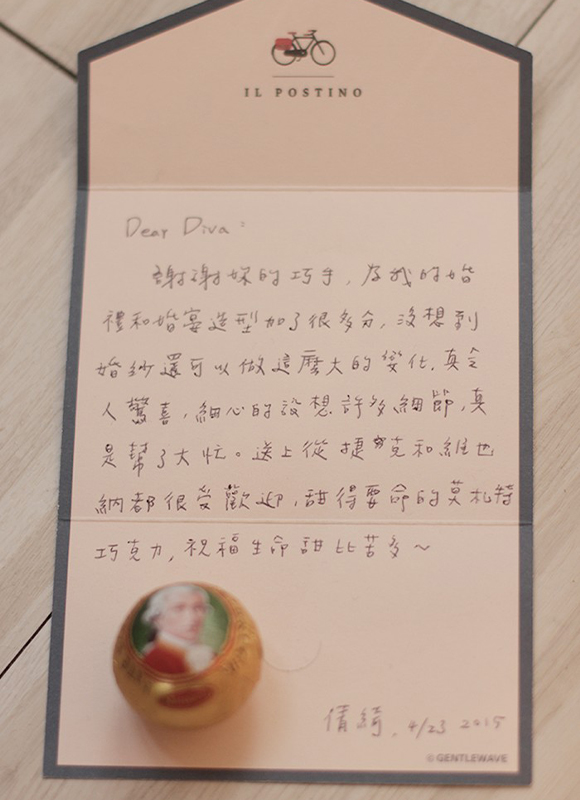 IL POSTINO
Dear Diva:
謝謝妳的巧手,為我的婚
禮和婚宴造型加了很多分,沒想到
婚紗還可以做這麼大的變化,真令
人驚喜,細心的設想許多細節,真
是幫了大忙。送上從捷克和維也
納都很受歡迎,甜得要命的莫札特
巧克力,祝福生命甜比苦多~
倩綺, 4/23 2015
© GENTLEWAVE